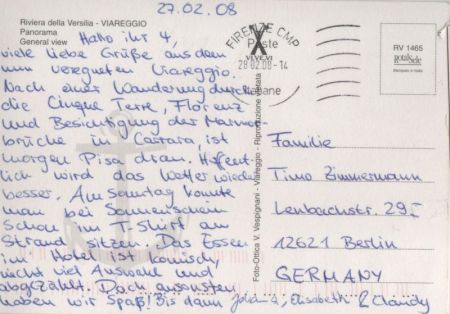 27.02.08
Riviera della Versilia - VIAREGGIO
Panorama
General view
Hallo ihr 4,
viele liebe Grüße aus dem
nun verregneten Viareggio.
Nach einer Wanderung durch
die Cinque Terre, Florenz
und Besichtigung der Marmor-
brüche in Carrara, ist
morgen Pisa dran. Hoffent-
lich wird das Wetter wieder
besser. Am Sonntag konnte
man bei Sonnenschein
schon im T-Shirt am
Strand sitzen. Das Essen
im Hotel ist komisch,
nicht viel Auswahl und
abgezählt. Doch ansonsten
haben wir Spaß! Bis dann
Elisabeth & Claudy
FIRENZE CMP
Poste
28.02.08-14
Italiane
RV 1465
Foto-Ottica V. Vespignani - Viareggio - Riproduzione vietata
Familie
Timo Zimmermann
Lenbachstr. 29
12621 Berlin
GERMANY